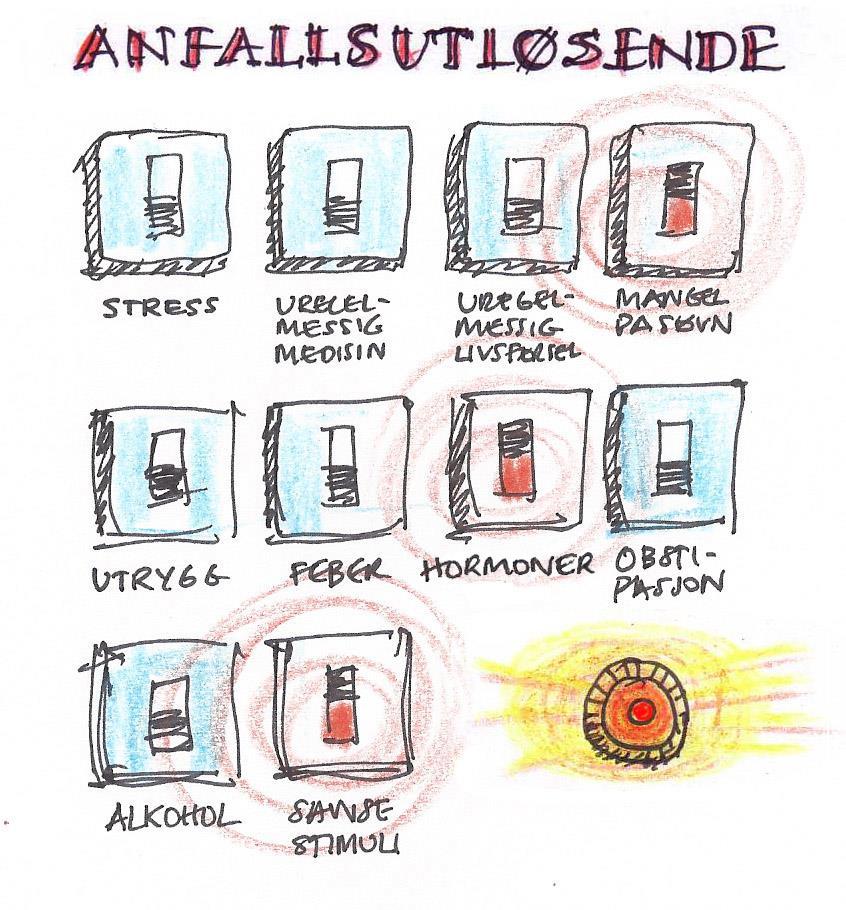 ANFALLSUTLØSENDE
STRESS
UREGEL-
MESSIG
MEDISIN
UREGEL-
MESSIG
LIVSFØRSEL
MANGEL
PÅ SØVN
UTRYGG
FEBER
HORMONER
OBSTI-
PASJON
ALKOHOL
SANSE
STIMULI